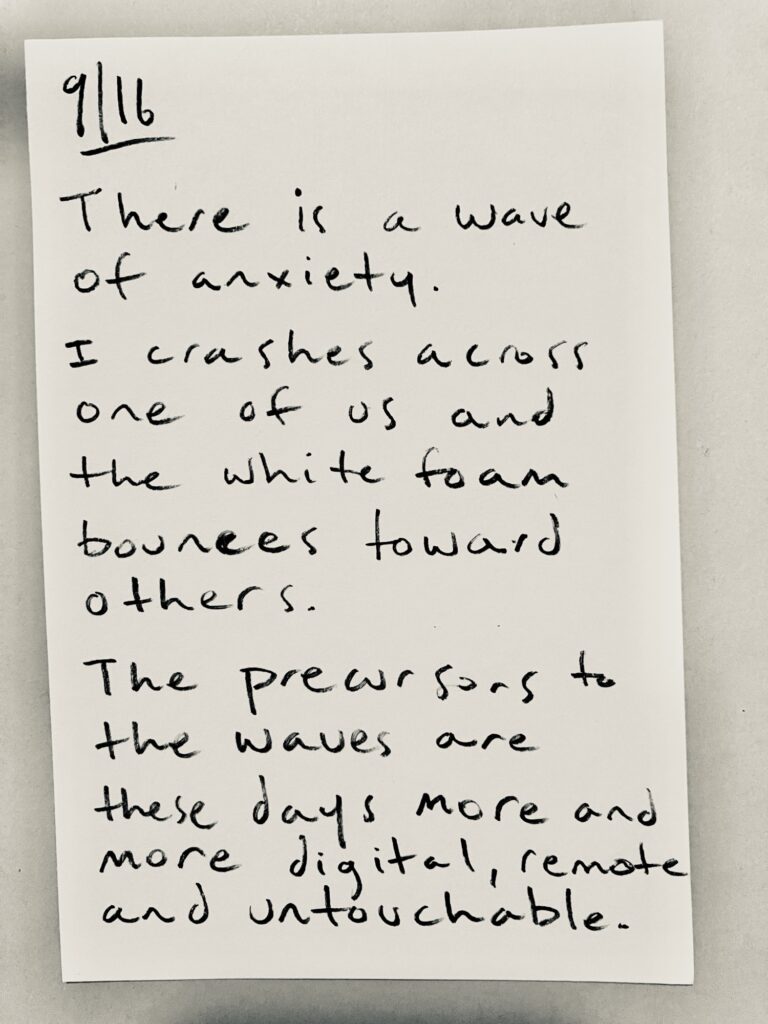 9/16
There is a wave
of anxiety.
I crashes across
one of us and
the white foam
bounces toward
others.
The precursors to
the waves are
these days more and
more digital, remote
and untouchable.